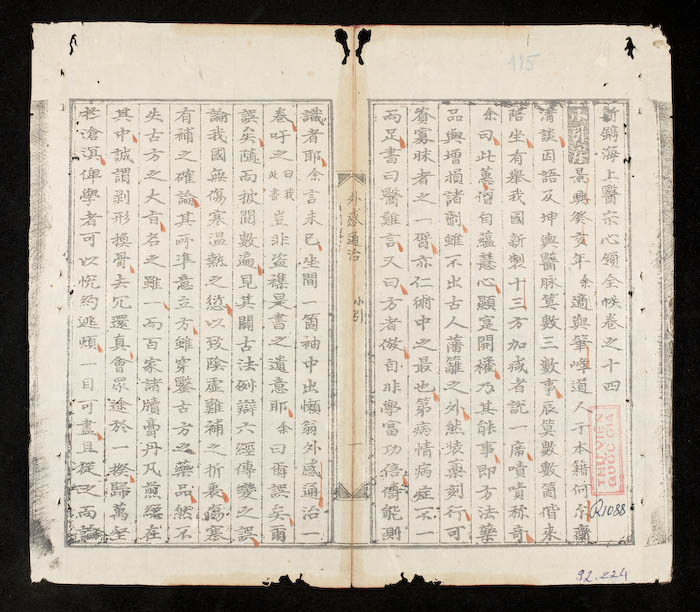 115
新鐫海上醫宗心領全帙卷之十四
景興癸亥年余適與筆峰道人于本籍何亭齋
清談因語及坤輿醫脉算數三數事辰算數數箇偕來
陪坐有舉我國新製十三方加減者說一席嘖嘖称奇
余曰此蓋自蘊慧心顯寔開乃其能事即方法藥
品與增損諸劑雖不出古人藩籬之外然裝藁刻行可
賚寡昧者之一臂亦仁術中之最也第病情病症不一
而足書曰醫難言又曰方者倣自非學富功倍儔能測
外感通治
小引
一
識者耶余言未已坐間一箇袖中出懶翁外感通治一
卷吁之曰我此書豈非盜襟是書之遺意耶余曰爾誤矣爾
誤矣隨而披閱數遍見其闢古法例辯六經傳變之誤
論我國無傷寒温熱之愆以致陰虛難補之折衷傷寒
有補之確論其所準意立方雖穿鑿古方之藥品然不
失古方之大旨名之雖一而百家諸牘膏丹凡煎總在
其中誠謂剥形換骨去冗還真會眾途於一揆歸萬
老滄溟俾學者可以悅約逃煩一目可盡且從之而論
THƯ VIỆN
QUỐC GIA
R1088
92.224